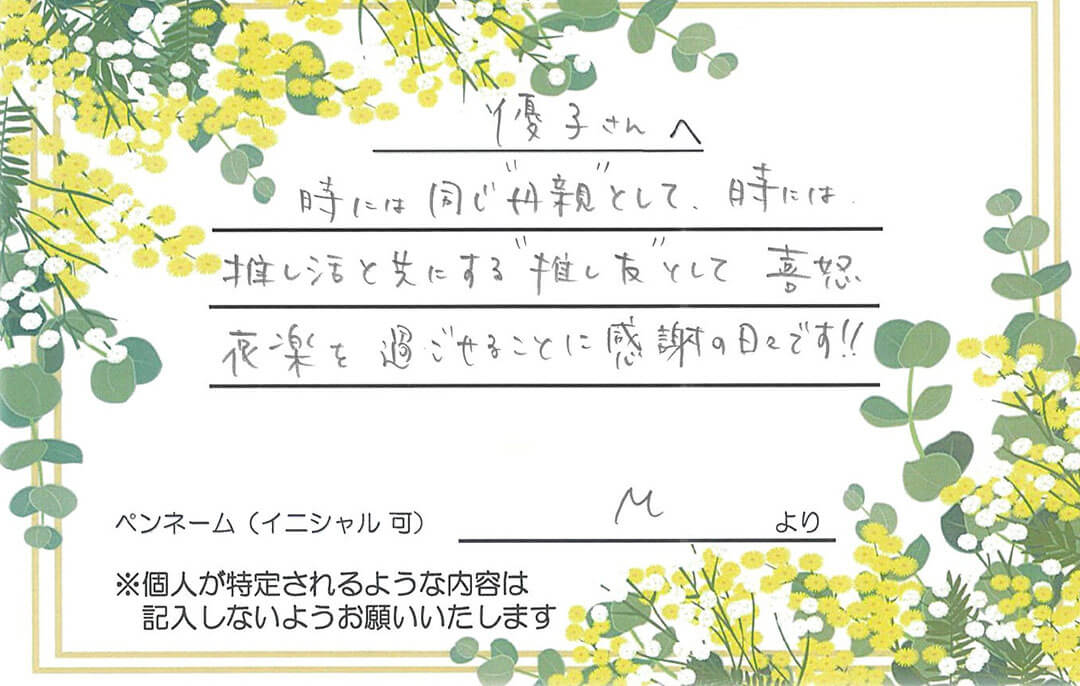 優子さんへ
時には同じ"母親"として、時には
推し活と共にする"推し友"として 喜怒
哀楽を 過ごせることに感謝の日々です!!
M
より
ペンネーム(イニシャル 可)
※個人が特定されるような内容は
記入しないようお願いいたします